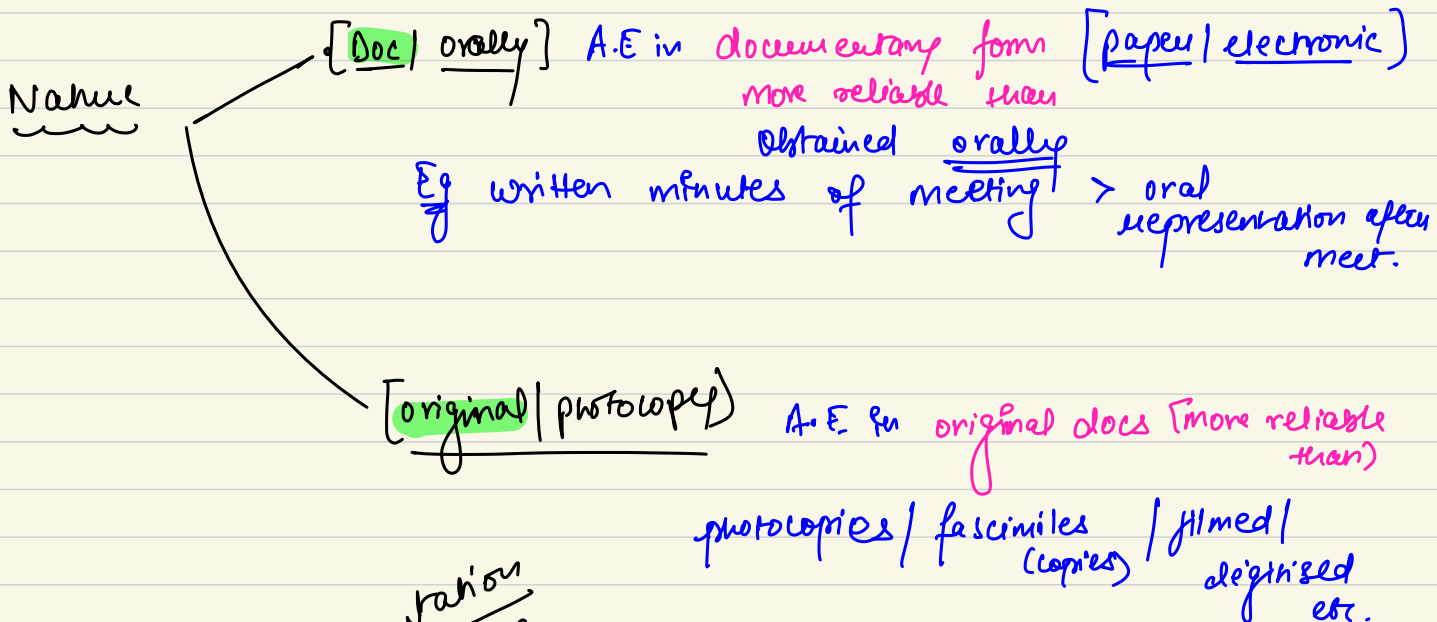 Nature
[Doc | orally] A.E in documentary form [paper | electronic]
more reliable than
Obtained orally
Eg written minutes of meeting > oral
representation after
meet.
[original | photocopy) A.E in original docs [more reliable
than)
photocopies / fascimiles / filmed /
(copies) digitised
etc.
ration